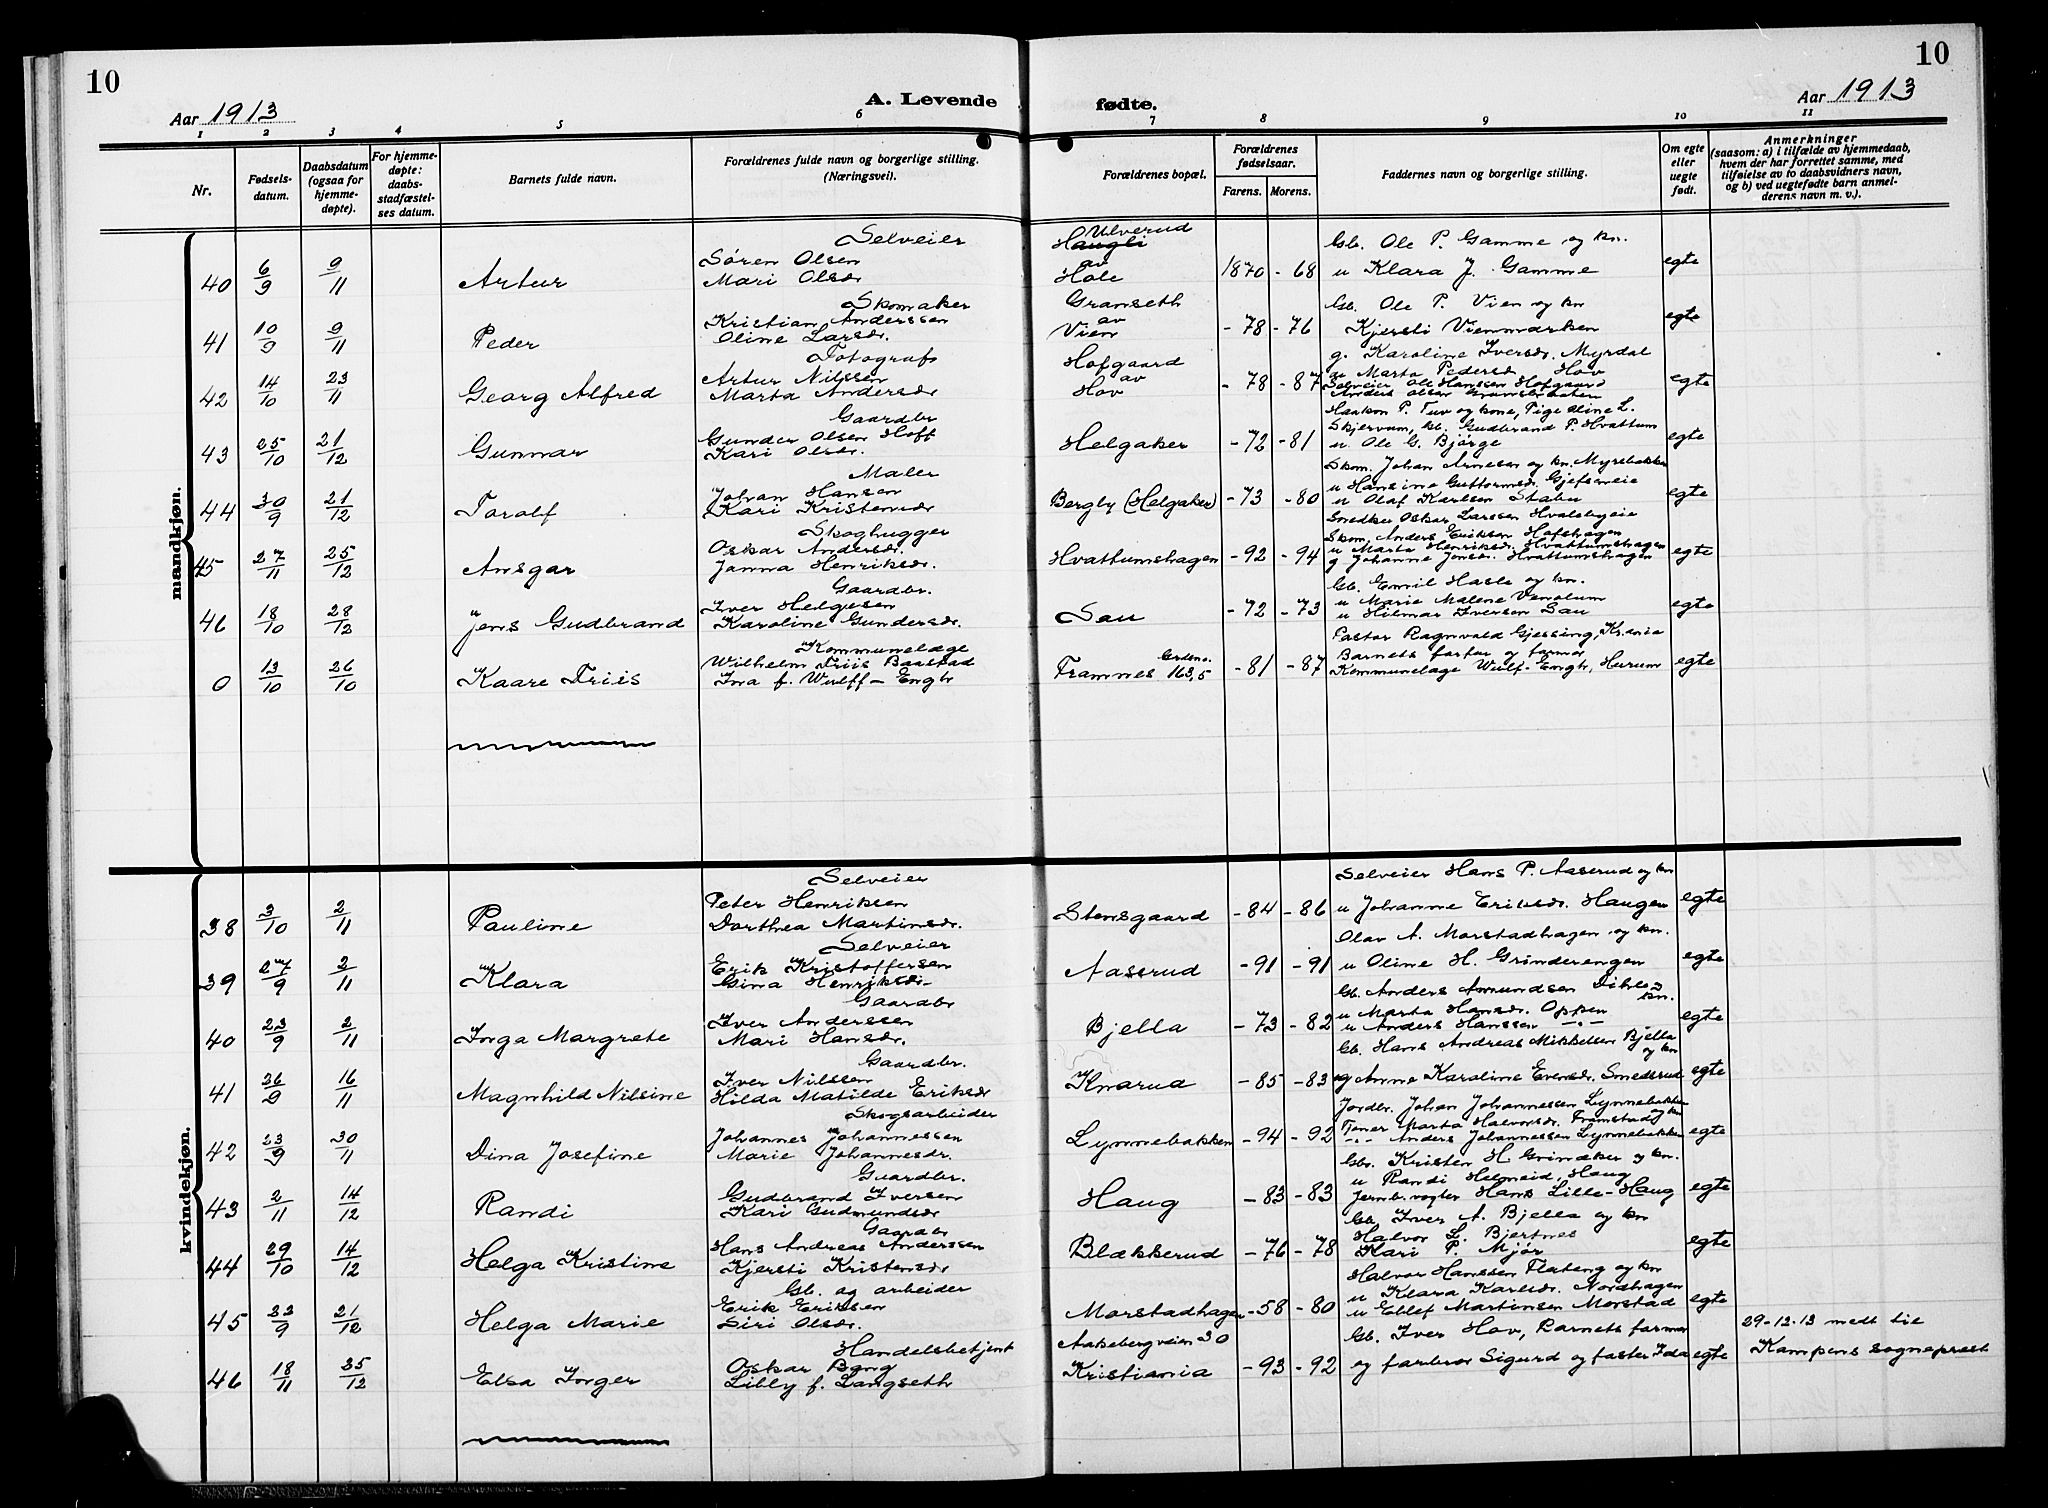 10
10
Aar 1913
A. Levende fødte.
Aar 1913
1 2 3 4 5 6 7 8 9 10 11
Nr.
Fødselsdatum.
Daabsdatum (ogsaa for hjemmedøpte).
For hjemmedøpte: daabsstadfæstelses datum.
Barnets fulde navn.
Forældrenes fulde navn og borgerlige stilling. (Næringsvei).
Forældrenes bopæl.
Forældrenes fødselsaar.
Farens. Morens.
Faddernes navn og borgerlige stilling.
Om egte eller uegte født.
Anmerkninger (saasom: a) i tilfælde av hjemmedaab, hvem der har forrettet samme, med tilføielse av to daabsvidners navn, og b) ved uegtefødte barn anmelderens navn m. v.).
mandkjøn.
40 6/9 9/11 Artur Selveier Søren Olsen Mari Olsdr. Ulverud Haugli av Hole 1870 - 68 Gb. Ole P. Gamme og kn. u Klara J. Gamme egte
41 10/9 9/11 Peder Skomaker Kristian Anderssen Oline Larsdr. Granseth av Vien - 78 - 76 Gb. Ole P. Vien og kn Kjersti Vienmarken egte
42 14/10 23/11 Georg Alfred Fotograf Artur Nilssen Marta Andersdr Hofgaard av Hov - 78 - 87 g. Karoline Iversdr. Myrdal u Marta Pedersd Hov Selveier Ole Hanssen Hofgaard Anders Olsen egte
43 25/10 21/12 Gunnar Gaardbr Gunder Olsen Hoff Kari Olsdr. Helgaker - 72 - 81 Haakon P. Tuv og kone, Pige Oline L. Skjervum, Gb. Gudbrand P. Hvattum u. Ole G. Bjørge egte
44 30/9 21/12 Torolf Maler Johan Hansen Kari Kristensdr Bergly (Helgaker) - 73 - 80 Skom. Johan Arnesen og kn. Myrebakken u Hansine Guttormsdr. Gjefseneie u Olaf Karlsen Stabu egte
45 27/11 25/12 Ansgar Skoghugger Oskar Andersdr. Janna Henriksdr. Hvattumshagen - 92 - 94 Snedker Oskar Larssen Hvalebyeie Skom. Anders Eriksen Hofshagen u Marta Henriksdr. Hvattumshagen g Johanne Jonsdr. Hvattumshagen egte
46 18/10 28/12 Jens Gudbrand Gaardbr. Iver Helgesen Karoline Gundersdr. Sau - 72 - 73 Gb. Emil Hasle og kn. u Marie Malene Venolum u Hilmar Iversen Sau egte
0 13/10 26/10 Kaare Friis Kommunelæge Wilhelm Friis Baastad Ina f. Wulff-Engh Framnes 163,5 - 81 - 87 Pastor Ragnvald Gjessing, Kr.ania Barnets farfar og farmor Kommunelæge Wulf-Engh, Hurum egte
kvindekjøn.
38 3/10 2/11 Pauline Selveier Peter Henriksen Dorthea Martinsdr. Stensgaard - 84 - 86 Selveier Hans P. Aaserud og kn u Johanne Eriksdr. Haugen egte
39 27/9 2/11 Klara Selveier Erik Kristoffersen Gina Henriksdr. Aaserud - 91 - 91 Olav A. Morstadhagen og kn. u Oline H. Grinderengen egte
40 23/9 2/11 Inga Margrete Gaardbr Iver Anderssen Mari Hansdr. Bjella - 73 - 82 Gb. Anders Amundsen Dihle og kn. u Marta Hansdr. Oppen u Anders Hanssen -"- egte
41 26/9 16/11 Magnhild Nilsine Gaardbr. Iver Nilssen Hilda Matilde Eriksdr Knarud - 85 - 83 Gb. Hans Andreas Mikkelsen Bjella og kn og Anne Karoline Evensdr. Smedsrud egte
42 23/9 30/11 Dina Josefine Skogsarbeider Johannes Johannessen Marie Johannesdr. Lynnebakken - 94 - 92 Jordbr. Johan Johannessen Lynnebakken og kn Tjener Marta Halvorsdr. Framstad -"- Anders Johannessen Lynnebakken egte
43 2/11 14/12 Randi Gaardbr. Gudbrand Iversen Kari Gudmundsdr Haug - 83 - 83 Gbr. Kristen H. Grinaker og kn. u Randi Helmeid, Haug Jernb.vogter Hans Lille-Haug egte
44 29/10 14/12 Helga Kristine Gaardbr Hans Andreas Anderssen Kjersti Kristensdr Blækkerud - 76 - 78 Gb. Iver A. Bjella og kn Halvor L. Bjertnes Kari P. Mjør egte
45 22/9 21/12 Helga Marie Gb. og arbeider Erik Eriksen Siri Olsdr. Morstadhagen - 58 - 80 Halvor Hanssen Flateng og kn u Klara Karlsdr. Nordhagen u Edlef Martinsen Morstad egte
46 18/11 25/12 Elsa Inger Handelsbetjent Oskar Bang Lilly f. Langseth Aakebergveien 30 Kristiania - 93 - 92 Gb. Iver Hov, Barnets farmor og farbror Sigurd og faster Ida egte 29-12-13 medt til Kampens sogneprest